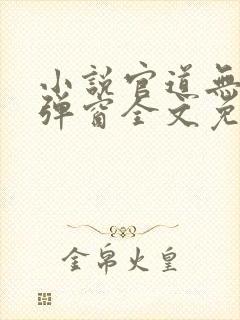 小説官道無
彈窗全文免
金帛火皇